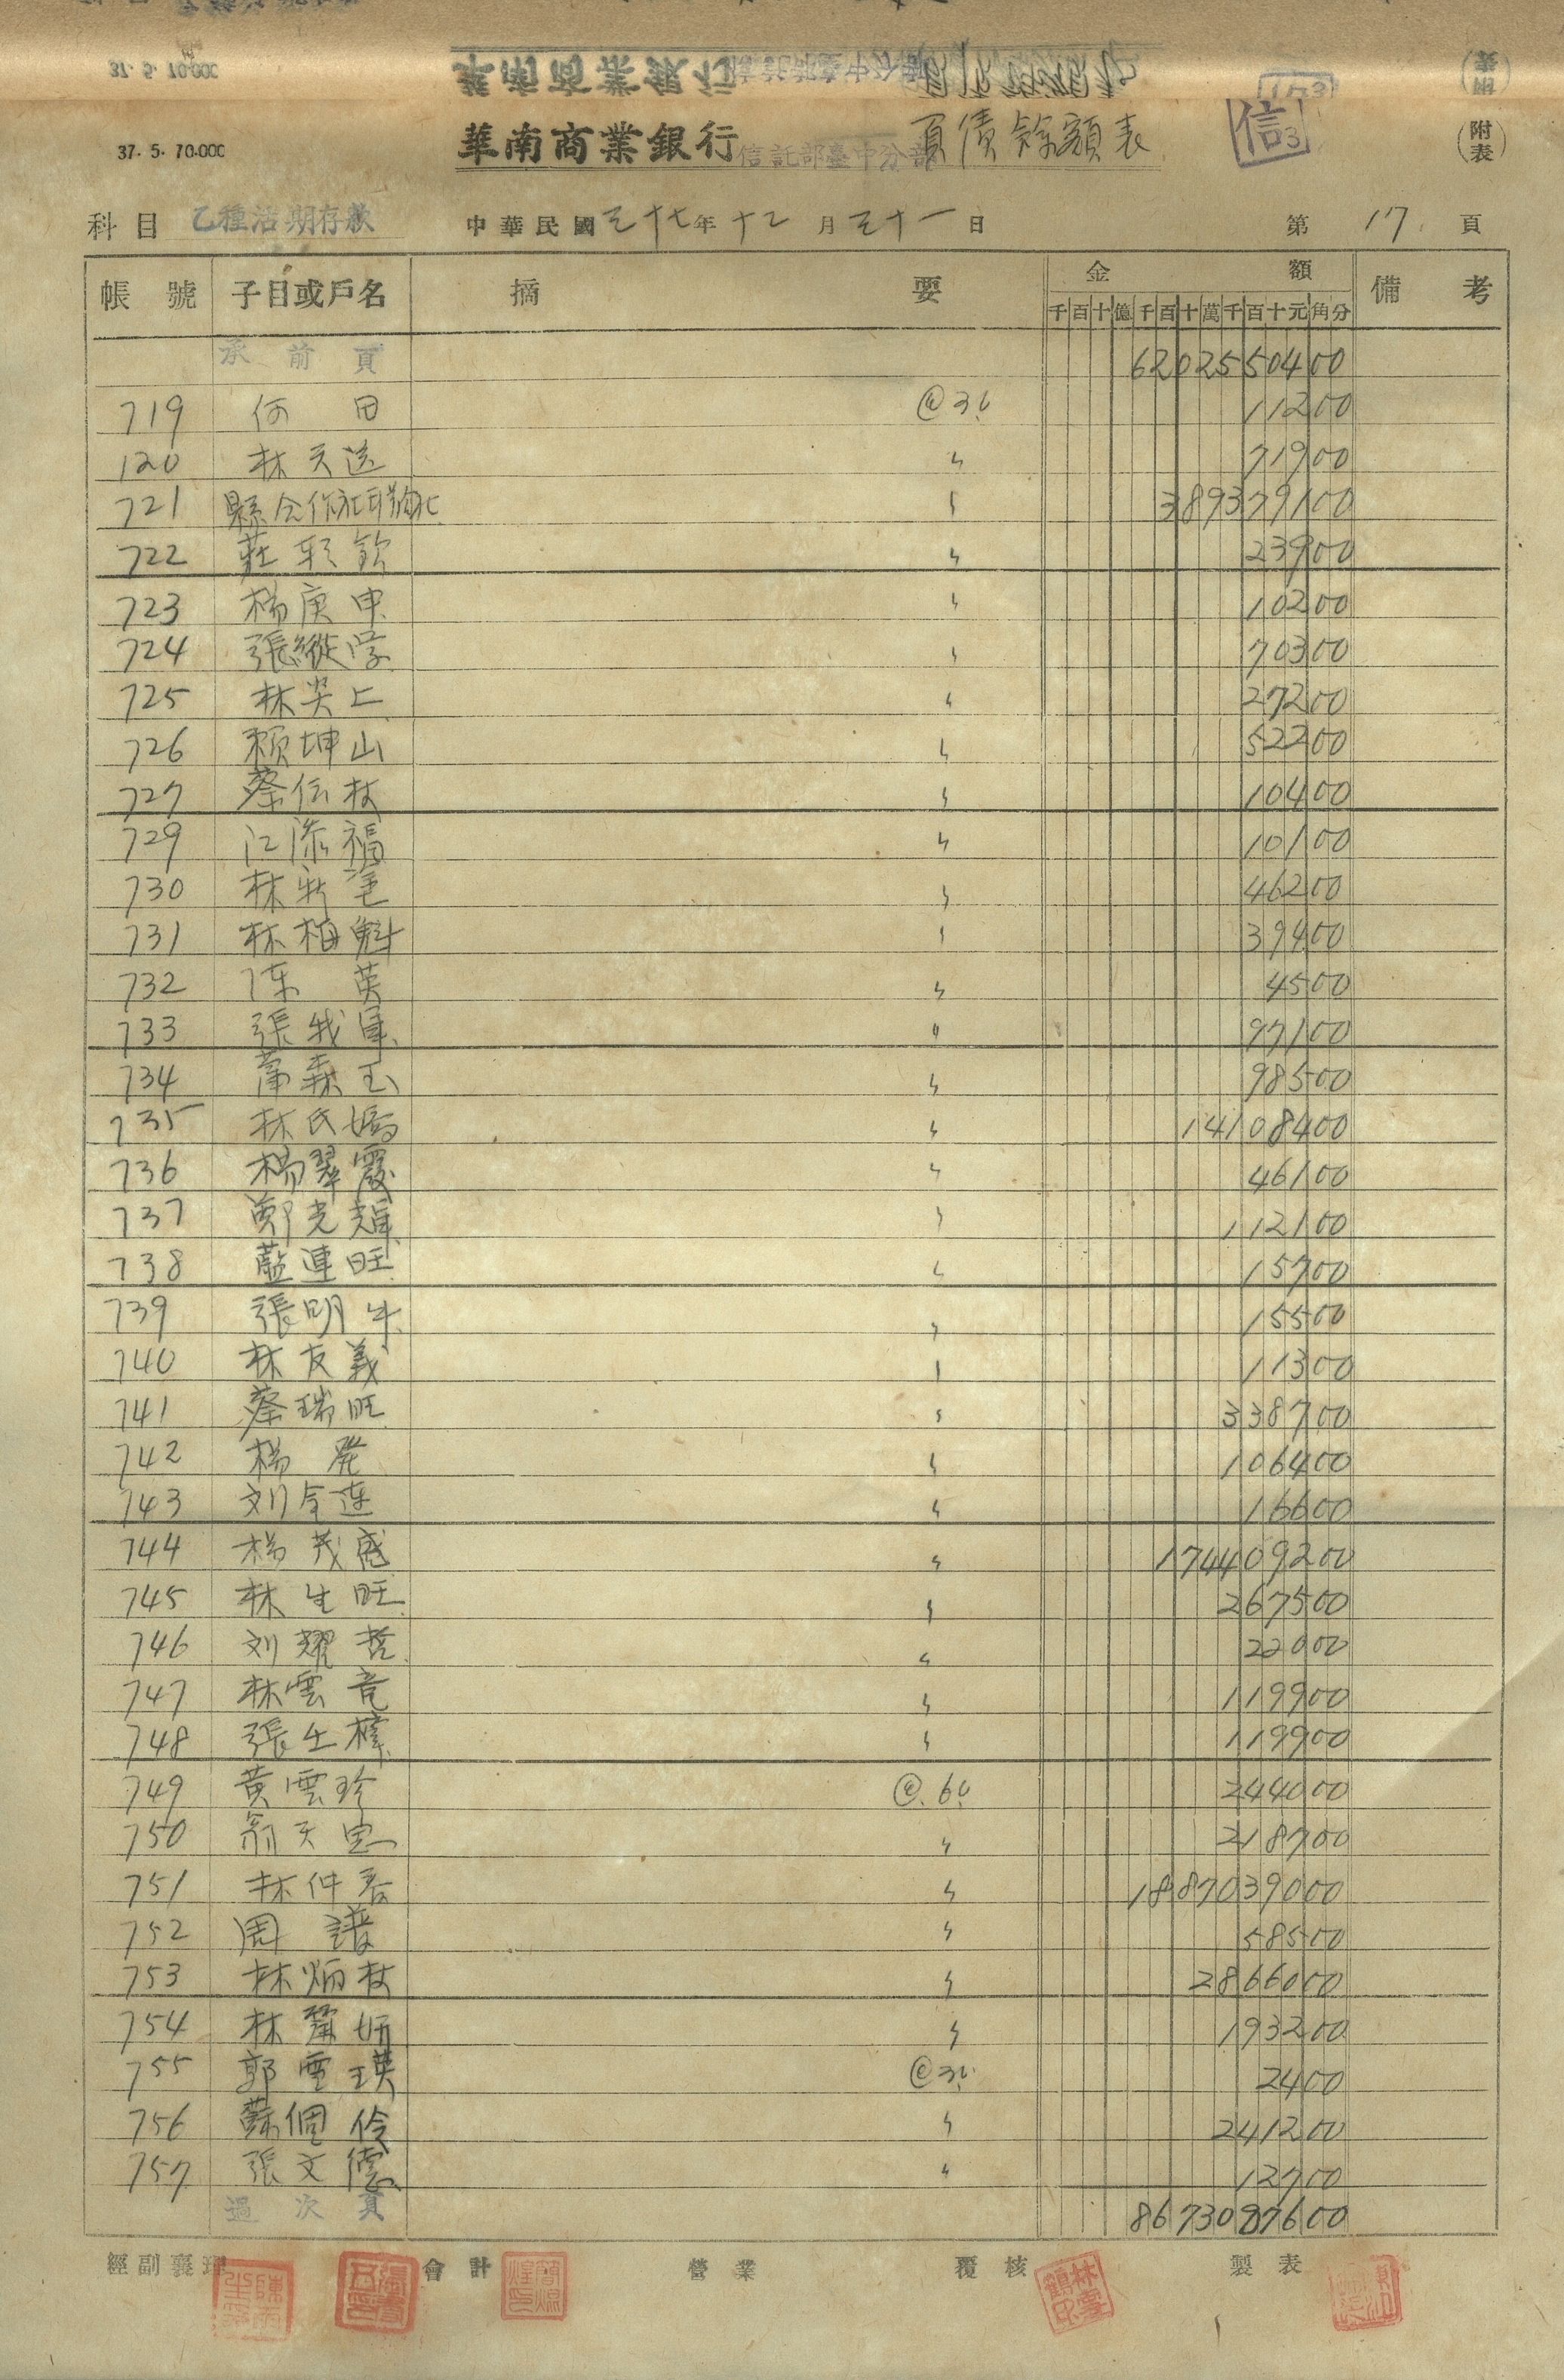 37. 5. 70.000
華南商業銀行信託部臺中分部 負債餘額表
信3
(附表)
科目 乙種活期存款 中華民國三十七年十二月三十一日 第17.頁
帳號 子目或戶名 摘要 金額 備考
千百十億千百十萬千百十元角分
承前頁 6202550400
719 何田 @3% 11200
120 林天送 〃 71900
721 縣合作社 〃 389379100
722 莊彩欽 〃 23900
723 楊庚申 〃 10200
724 張縱学 〃 70300
725 林尖上 〃 27200
726 賴坤山 〃 52200
727 蔡伝枝 〃 10400
729 江添福 〃 10100
730 林新 〃 46200
731 林栢魁 〃 39400
732 陳英 〃 4500
733 張我軍 〃 97100
734 葉森玉 〃 98500
735 林氏 〃 14108400
736 楊翠霞 〃 46100
737 鄭光輝 〃 112100
738 藍連旺 〃 15700
739 張明 〃 15500
740 林友義 〃 11300
741 蔡瑞旺 〃 338700
742 楊発 〃 106400
743 刘金蓮 〃 16600
744 楊茂盛 〃 174409200
745 林生旺 〃 267500
746 刘耀哲 〃 22000
747 林雲竜 〃 119900
748 張土樟 〃 119900
749 黃雲珍 @.6% 244000
750 翁天 〃 218700
751 林仲春 〃 1887039000
752 周譜 〃 58500
753 林炳枝 〃 2866000
754 林麗妍 〃 193200
755 郭雪瑛 @3% 2400
756 蘇個伶 〃 241200
757 張文德 〃 12700
過次頁 8673087600
經副襄理 會計 營業 覆核 製表